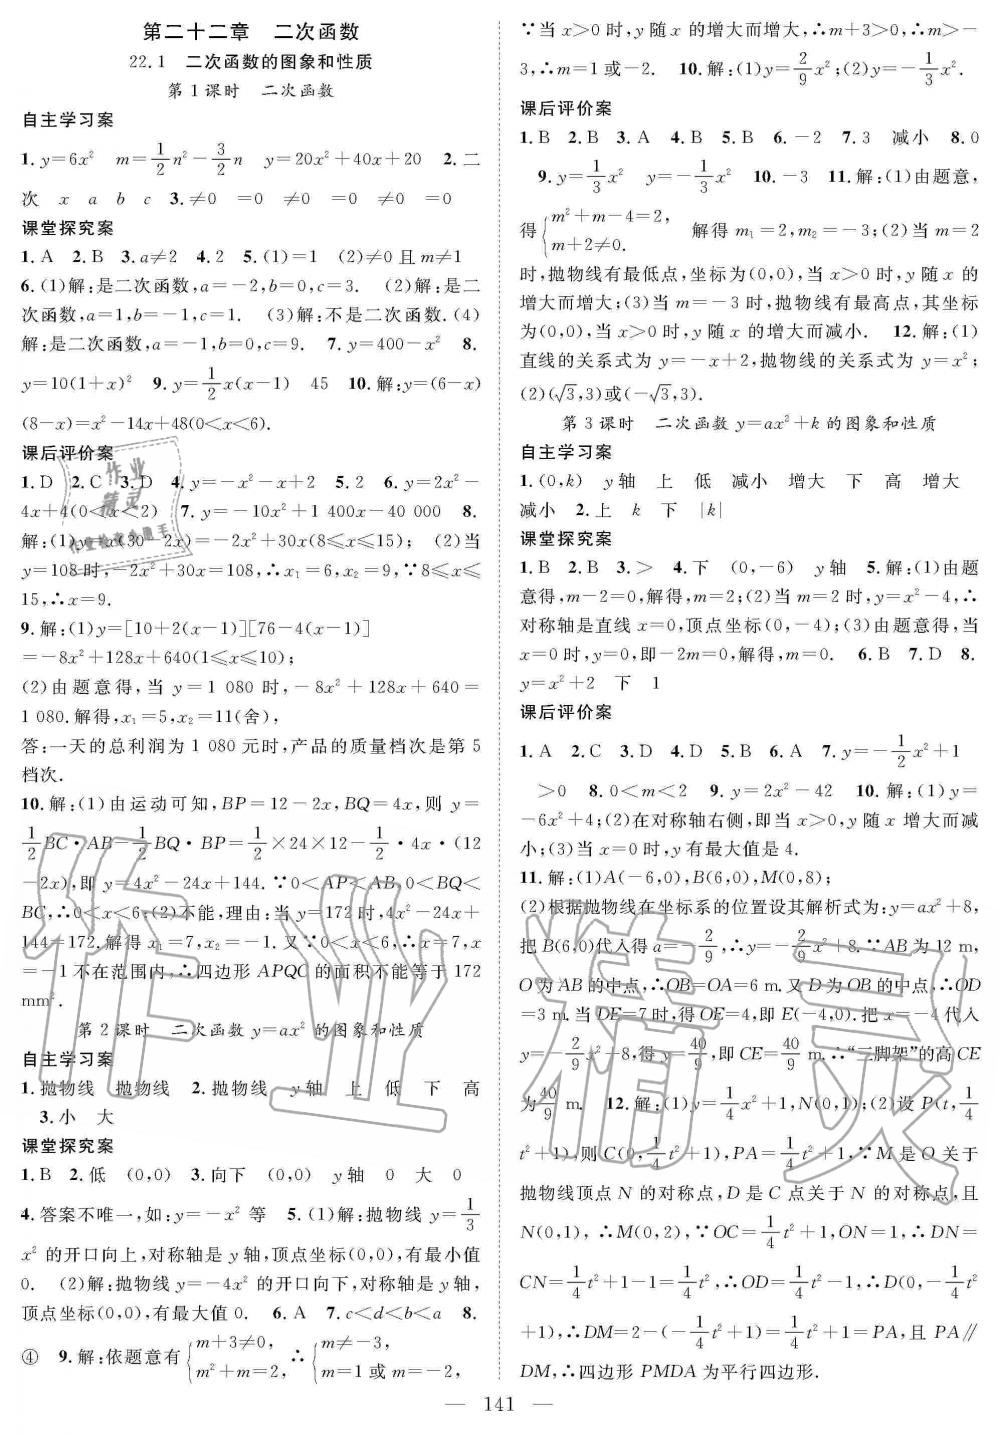 第二十二章　二次函数
22.1　二次函数的图象和性质
第1课时　二次函数
自主学习案
1.y=6x²　m=1/2n²-3/2n　y=20x²+40x+20　2.二
次　x　a　b　c　3.≠0　=0　≠0　=0　≠0　=0
课堂探究案
1.A　2.B　3.a≠2　4.2　5.(1)=1　(2)≠0且m≠1
6.(1)解:是二次函数,a=-2,b=0,c=3.　(2)解:是二
次函数,a=1,b=-1,c=1.　(3)解:不是二次函数.(4)
解:是二次函数,a=-1,b=0,c=9.　7.y=400-x²　8.
y=10(1+x)²　9.y=1/2x(x-1)　45　10.解:y=(6-x)
(8-x)=x²-14x+48(0<x<6).
课后评价案
1.D　2.C　3.D　4.y=-x²-x+2　5.2　6.y=2x²-
4x+4(0<x<2)　7.y=-10x²+1 400x-40 000　8.
解:(1)y=x(30-2x)=-2x²+30x(8≤x≤15);　(2)当
y=108时,-2x²+30x=108,∴x₁=6,x₂=9,∵8≤x≤
15,∴x=9.
9.解:(1)y=[10+2(x-1)][76-4(x-1)]
=-8x²+128x+640(1≤x≤10);
(2)由题意得,当y=1 080时,-8x²+128x+640=
1 080.解得,x₁=5,x₂=11(舍),
答:一天的总利润为1 080元时,产品的质量档次是第5
档次.
10.解:(1)由运动可知,BP=12-2x,BQ=4x,则y=
1/2BC·AB-1/2BQ·BP=1/2×24×12-1/2·4x·(12
-2x),即y=4x²-24x+144.∵0<AP<AB,0<BQ<
BC,∴0<x<6;(2)不能,理由:当y=172时,4x²-24x+
144=172.解得x₁=7,x₂=-1.又∵0<x<6,∴x=7,x
=-1不在范围内,∴四边形APQC的面积不能等于172
mm².
第2课时　二次函数y=ax²的图象和性质
自主学习案
1.抛物线　抛物线　2.抛物线　y轴　上　低　下　高
3.小　大
课堂探究案
1.B　2.低　(0,0)　3.向下　(0,0)　y轴　0　大　0
4.答案不唯一,如:y=-x²等　5.(1)解:抛物线y=1/3
x²的开口向上,对称轴是y轴,顶点坐标(0,0),有最小值
0.　(2)解:抛物线y=-4x²的开口向下,对称轴是y轴,
顶点坐标(0,0),有最大值0.　6.A　7.c<d<b<a　8.
④　9.解:依题意有{m+3≠0, m²+m=2, ∴{m≠-3, m=1或m=-2,
∵当x>0时,y随x的增大而增大,∴m+3>0,∴m>-
3,∴m=1或-2.　10.解:(1)y=2/9x²;(2)y=-1/3x².
课后评价案
1.B　2.B　3.A　4.B　5.B　6.-2　7.3　减小　8.0
9.y=1/3x²　y=-1/3x²　10.-3　11.解:(1)由题意,
得{m²+m-4=2, m+2≠0.　解得m₁=2,m₂=-3;(2)当m=2
时,抛物线有最低点,坐标为(0,0),当x>0时,y随x的
增大而增大;(3)当m=-3时,抛物线有最高点,其坐标
为(0,0),当x>0时,y随x的增大而减小.　12.解:(1)
直线的关系式为y=-x+2,抛物线的关系式为y=x²;
(2)(√3,3)或(-√3,3).
第3课时　二次函数y=ax²+k的图象和性质
自主学习案
1.(0,k)　y轴　上　低　减小　增大　下　高　增大
减小　2.上　k　下　|k|
课堂探究案
1.B　2.B　3.>　4.下　(0,-6)　y轴　5.解:(1)由题
意得,m-2=0,解得,m=2;(2)当m=2时,y=x²-4,∴
对称轴是直线x=0,顶点坐标(0,-4);(3)由题意得,当
x=0时,y=0,即-2m=0,解得,m=0.　6.B　7.D　8.
y=x²+2　下　1
课后评价案
1.A　2.C　3.D　4.D　5.B　6.A　7.y=-1/2x²+1
>0　8.0<m<2　9.y=2x²-42　10.解:(1)y=
-6x²+4;(2)在对称轴右侧,即当x>0,y随x增大而减
小;(3)当x=0时,y有最大值是4.
11.解:(1)A(-6,0),B(6,0),M(0,8);
(2)根据抛物线在坐标系的位置设其解析式为:y=ax²+8,
把B(6,0)代入得a=-2/9,∴y=-2/9x²+8.∵AB为12 m,
O为AB的中点,∴OB=OA=6 m.又D为OB的中点,∴OD
=3 m.当DE=7时,得OE=4,即E(-4,0).把x=-4代入
y=-2/9x²+8,得y=40/9,即CE=40/9 m.∴“三脚架”的高CE
为40/9 m.　12.解:(1)y=1/4x²+1,N(0,1);(2)设P(t,1/4
t²+1),则C(0,1/4t²+1),PA=1/4t²+1,∵M是O关于
抛物线顶点N的对称点,D是C点关于N的对称点,且
N(0,1),∴M(0,2),∵OC=1/4t²+1,ON=1,∴DN=
CN=1/4t²+1-1=1/4t²,∴OD=1/4t²-1,∴D(0,-1/4t²
+1),∴DM=2-(-1/4t²+1)=1/4t²+1=PA,且PA∥
DM,∴四边形PMDA为平行四边形.
— 141 —
作业精灵